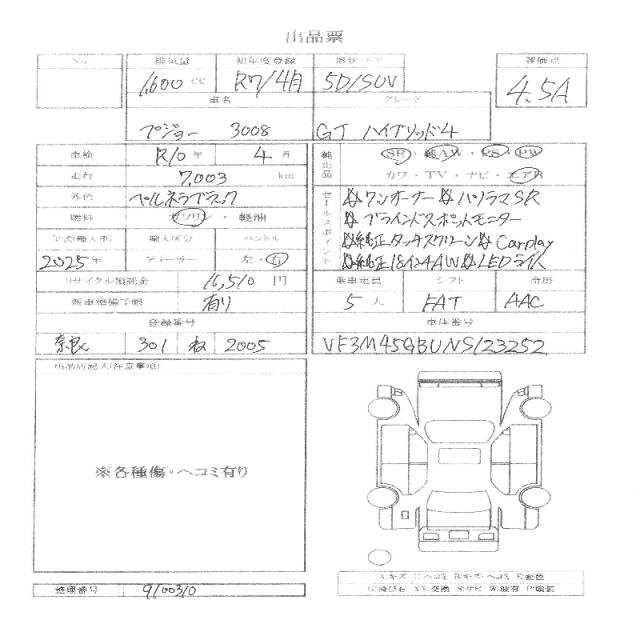 出品票
No. 排気量 初年度登録 形状・ドア 評価点
1,600 cc R7/4月 5D/SUV 4.5A
車名 グレード
プジョー 3008 GT ハイブリッド4
車検 R10年 4月
走行 7,003 km
外色 ペルネラブラック
燃料 ガソリン・軽油
年式(輸入車) 輸入区分 ハンドル
2025年 ディーラー 左・右
リサイクル預託金 16,510 円
新車整備手帳 有り
登録番号
奈良 301 ね 2005
純正品 SR・AW・PS・PW
カワ・TV・ナビ・エアB
セールスポイント
ワンオーナー パノラマSR
ブラインドスポットモニター
純正タッチスクリーン Carplay
純正18インチAW LEDライト
乗車定員 シフト 冷房
5人 FAT AAC
車体番号
VF3M45GBUNS123252
出品店記入(注意事項)
※各種傷・ヘコミ有り
整理番号 9100310